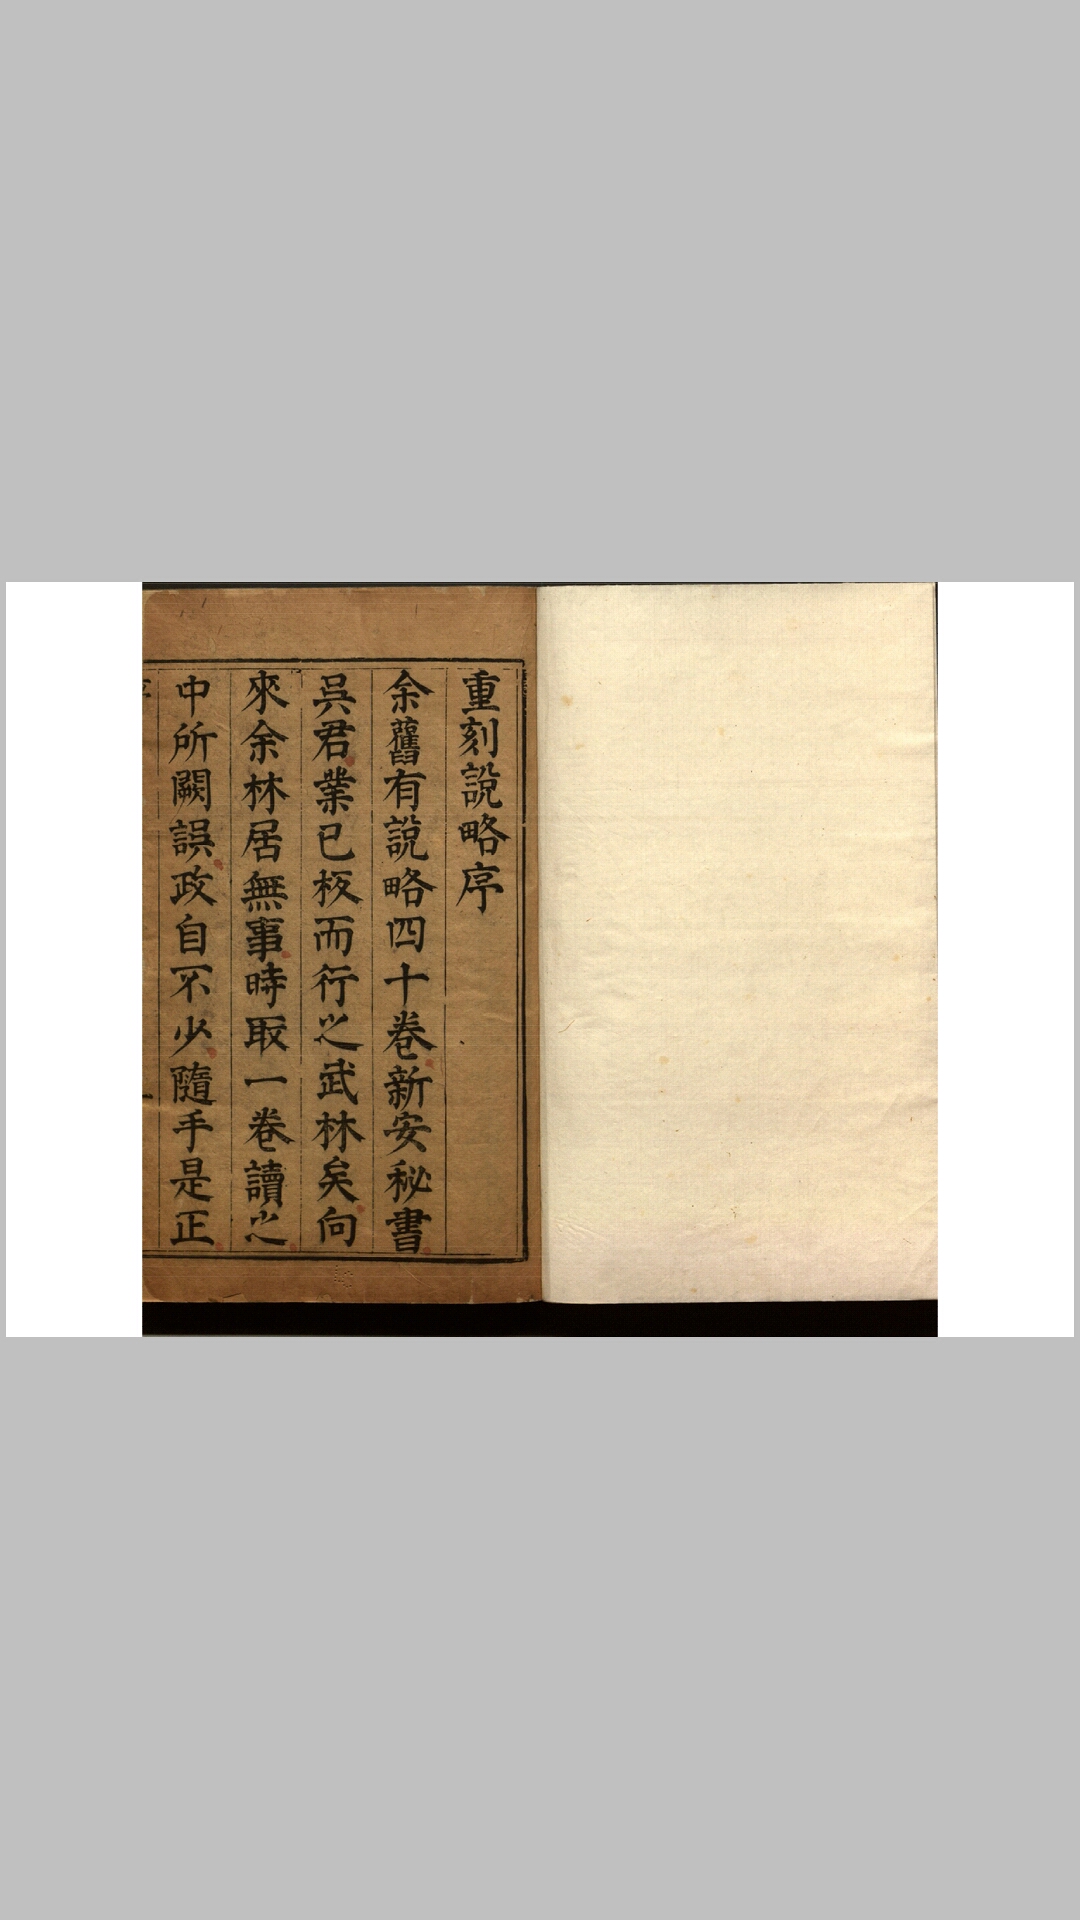 重刻說略序
余舊有說略四十卷新安秘書
吳君業已板而行之武林矣向
來余林居無事時取一卷讀之
中所闕誤政自不少隨手是正